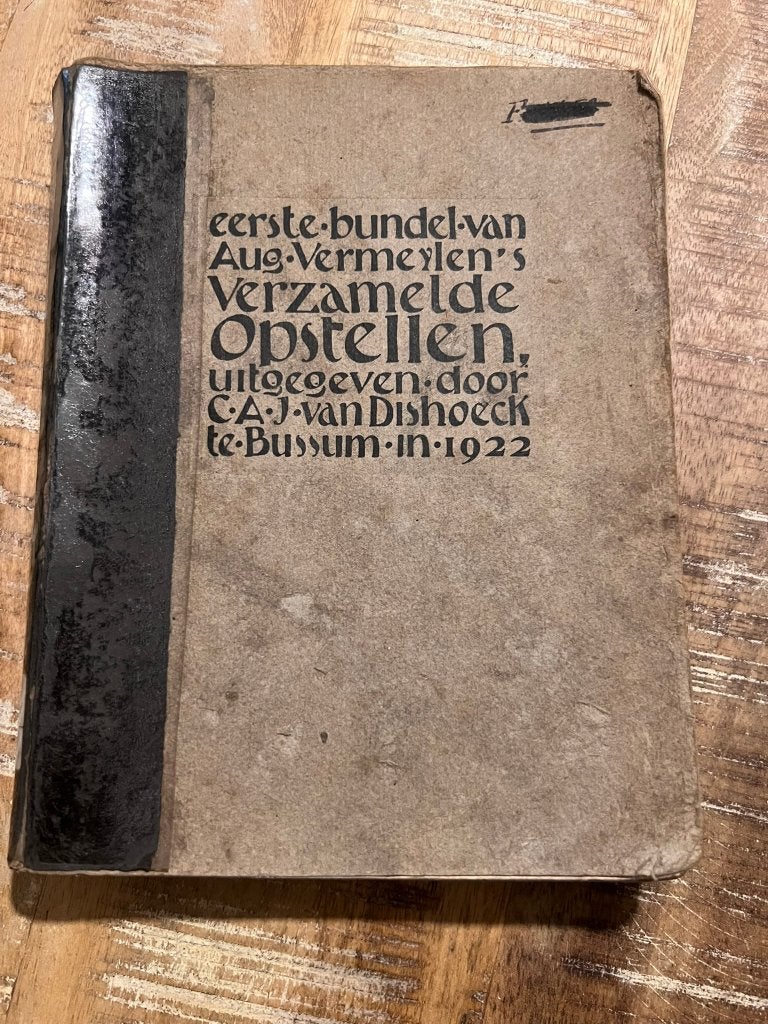 eerste·bundel·van
Aug·Vermeylen's
Verzamelde
Opstellen,
uitgegeven·door
C·A·J·van Dishoeck
te·Bussum·in·1922